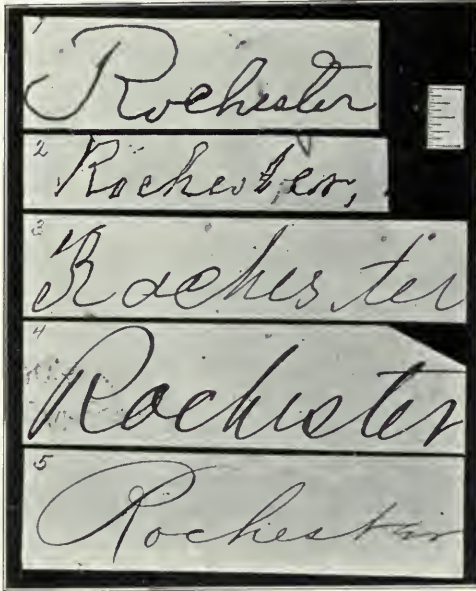 1
Rochester
2
Rochester,
3
Rochester
4
Rochester
5
Rochester